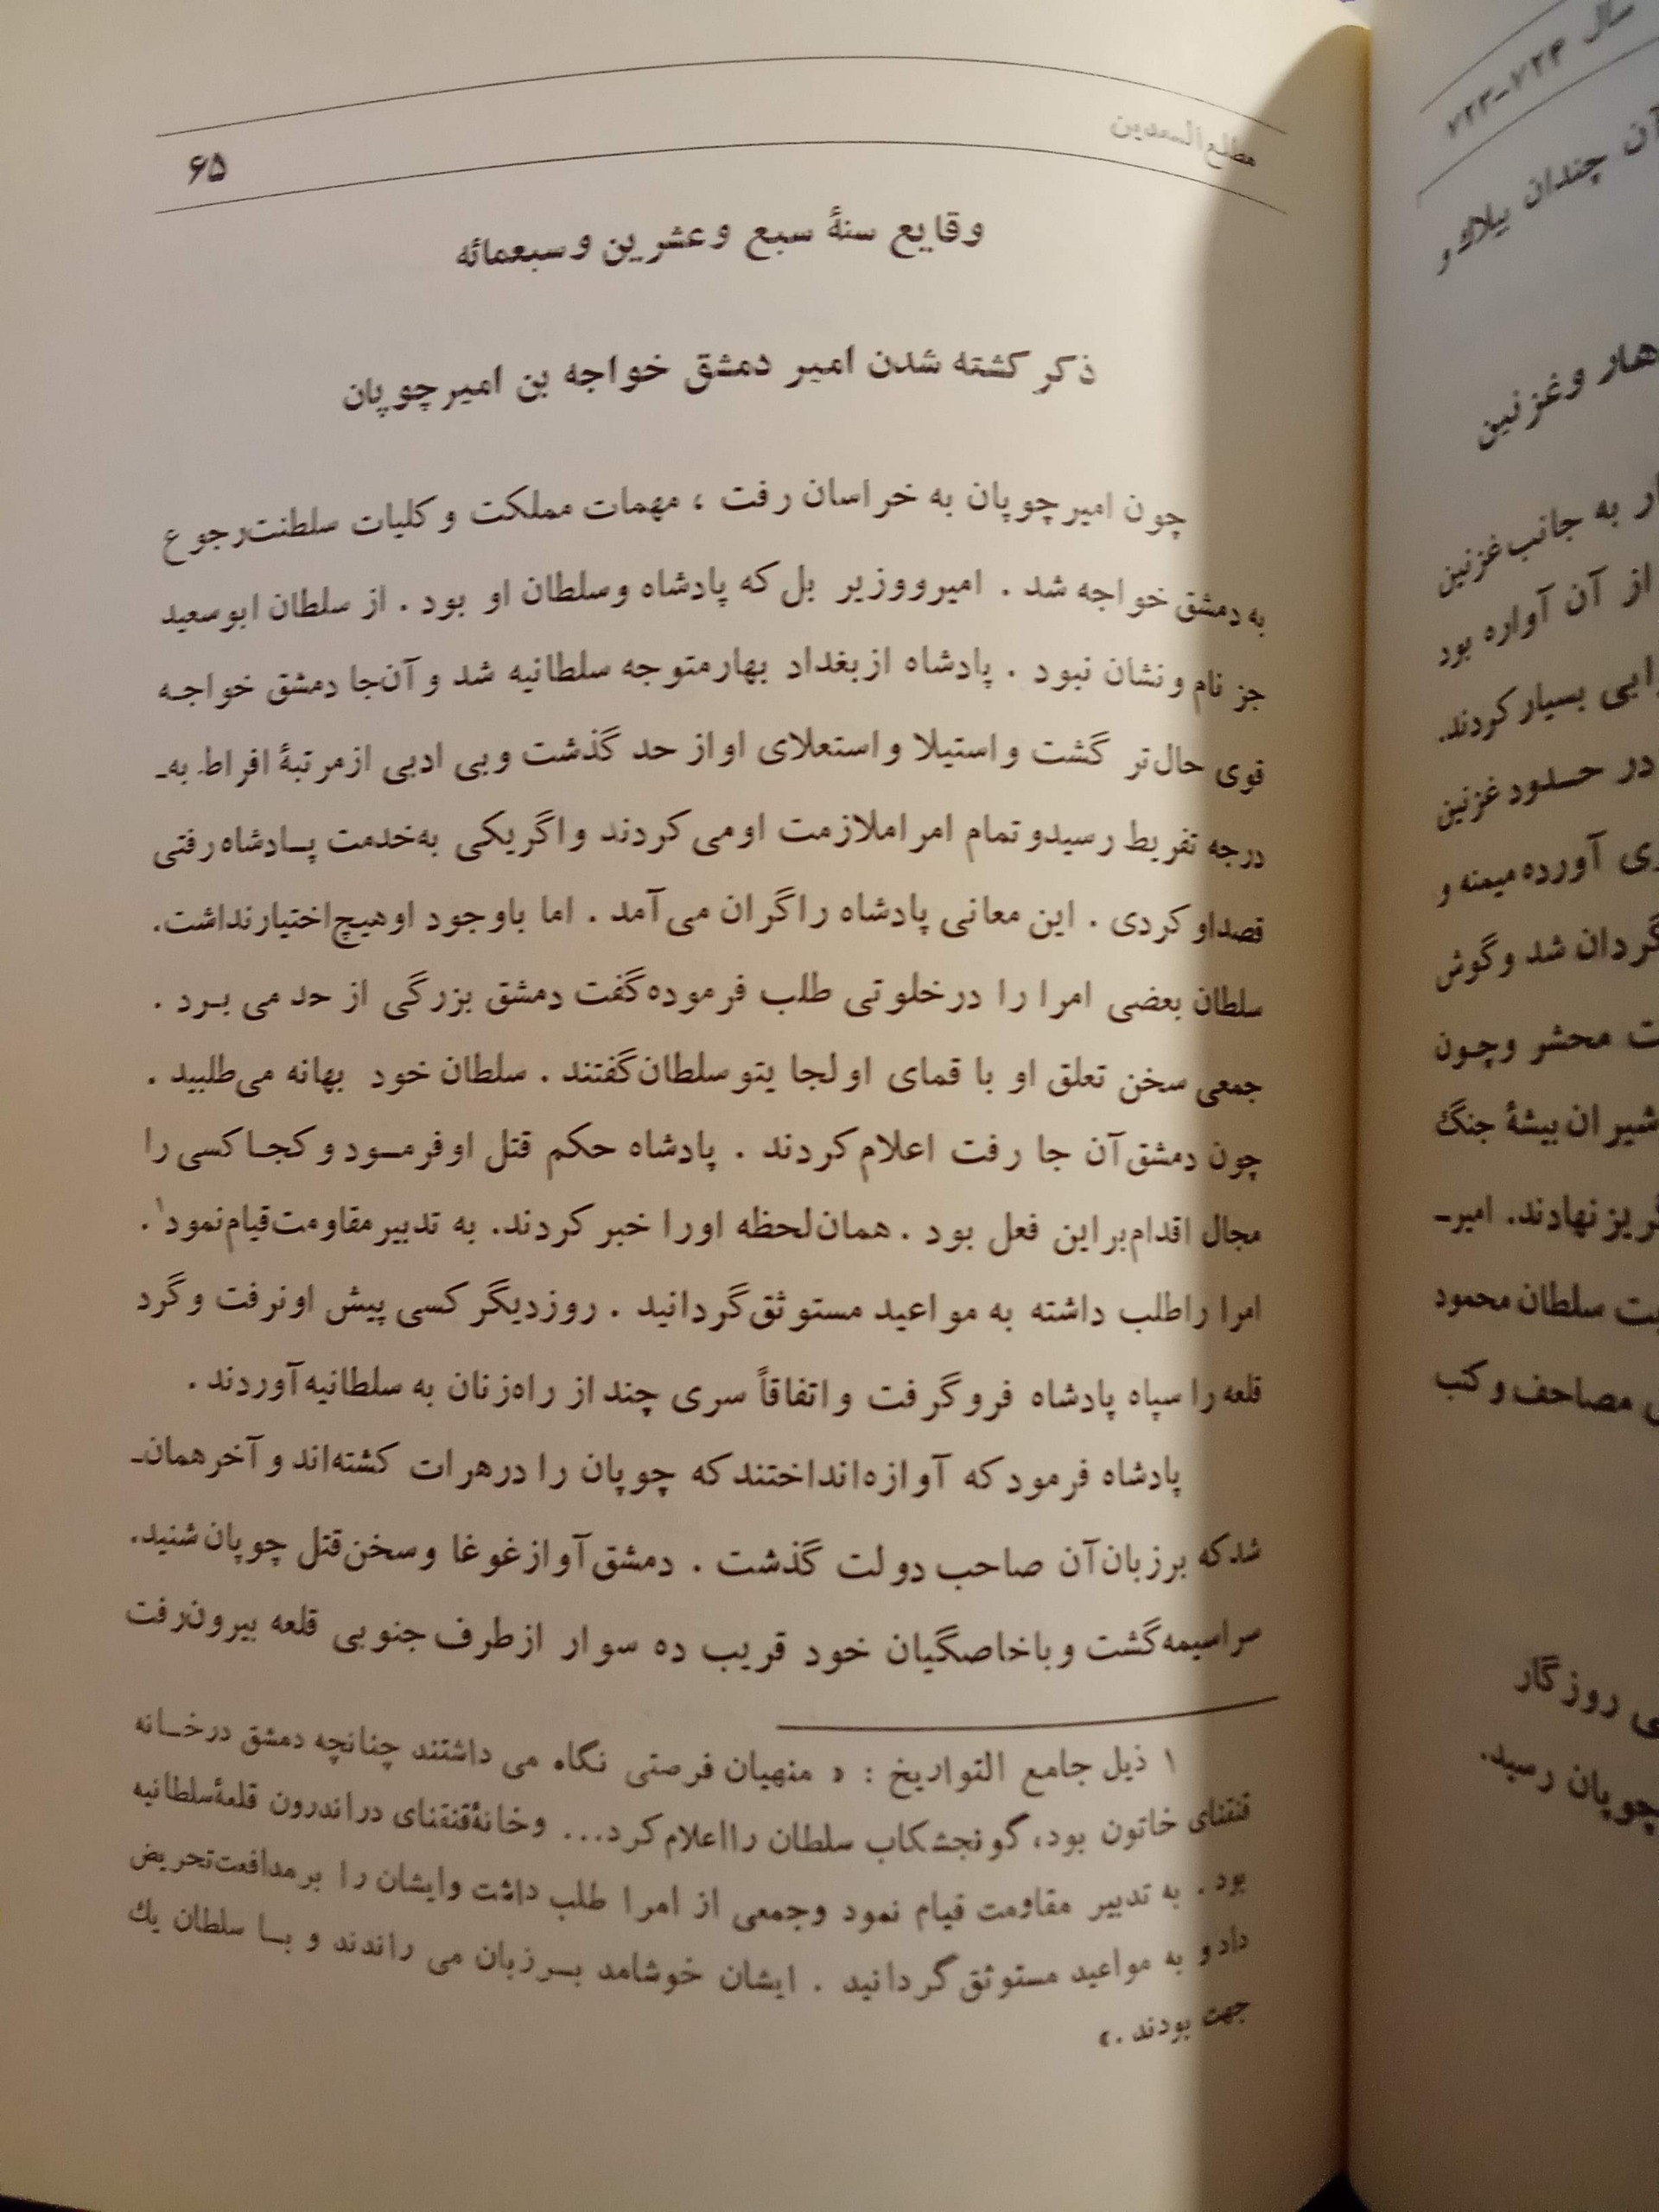 مطلع السعدین
۶۵
وقایع سنهٔ سبع و عشرین و سبعمائه
ذکر کشته شدن امیر دمشق خواجه بن امیرچوپان
چون امیرچوپان به خراسان رفت ، مهمات مملکت و کلیات سلطنت رجوع
به دمشق خواجه شد . امیر و وزیر بل که پادشاه و سلطان او بود . از سلطان ابوسعید
جز نام و نشان نبود . پادشاه از بغداد بهار متوجه سلطانیه شد و آن‌جا دمشق خواجه
قوی حال‌تر گشت و استیلا و استعلای او از حد گذشت و بی ادبی از مرتبهٔ افراط به‌ـ
درجه تفریط رسید و تمام امرا ملازمت او می کردند و اگر یکی به‌خدمت پادشاه رفتی
قصد او کردی . این معانی پادشاه را گران می آمد . اما با وجود او هیچ اختیار نداشت.
سلطان بعضی امرا را در خلوتی طلب فرموده گفت دمشق بزرگی از حد می برد .
جمعی سخن تعلق او با قمای اولجایتو سلطان گفتند . سلطان خود بهانه می‌طلبید .
چون دمشق آن جا رفت اعلام کردند . پادشاه حکم قتل او فرمود و کجا کسی را
مجال اقدام بر این فعل بود . همان لحظه او را خبر کردند. به تدبیر مقاومت قیام نمود۱ .
امرا را طلب داشته به مواعید مستوثق گردانید . روز دیگر کسی پیش او نرفت و گرد
قلعه را سپاه پادشاه فرو گرفت و اتفاقاً سری چند از راه‌زنان به سلطانیه آوردند .
پادشاه فرمود که آوازه انداختند که چوپان را در هرات کشته‌اند و آخر همان‌ـ
شد که بر زبان آن صاحب دولت گذشت . دمشق آواز غوغا و سخن قتل چوپان شنید.
سراسیمه گشت و با خاصگیان خود قریب ده سوار از طرف جنوبی قلعه بیرون رفت
۱ ذیل جامع التواریخ : « منهیان فرصتی نگاه می داشتند چنانچه دمشق در خانه
قنقنای خاتون بود، گونجشکاب سلطان را اعلام کرد... و خانهٔ قنقنای در اندرون قلعهٔ سلطانیه
بود . به تدبیر مقاومت قیام نمود و جمعی از امرا طلب داشت و ایشان را بر مدافعت تحریض
داد و به مواعید مستوثق گردانید . ایشان خوشامد بر زبان می راندند و با سلطان یك
جهت بودند .»
سال ۷۲۴-۷۲۳
آن چندان بیلاك و
هار و غزنین
ار به جانب غزنین
از آن آواره بود
ابی بسیار کردند.
در حدود غزنین
ری آورده میمنه و
گردان شد و گوش
ت محشر و چون
شیران بیشهٔ جنگ
ریز نهادند. امیر‌ـ
یت سلطان محمود
مصاحف و کتب
ی روزگار
چوپان رسید.